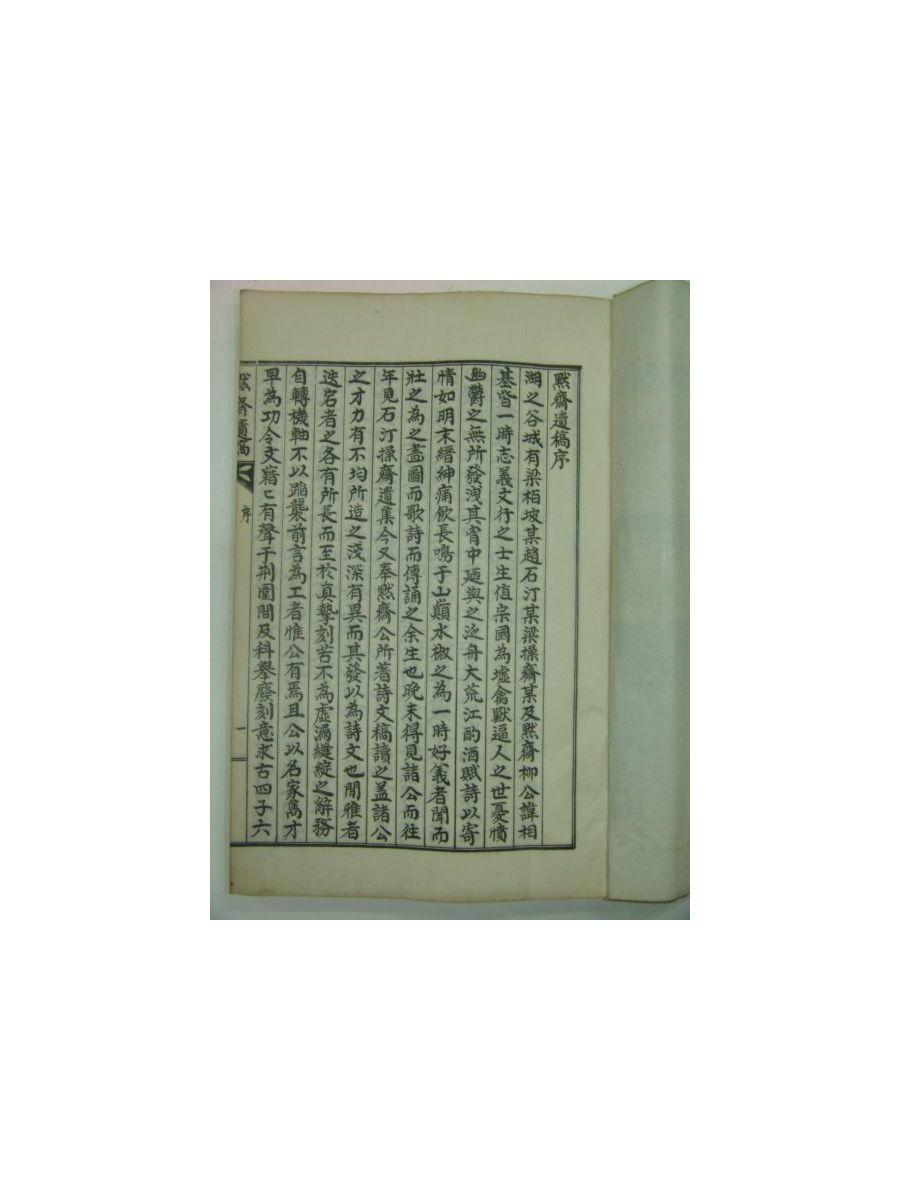 默齋遺稿序
湖之谷城有梁栢坡某趙石汀某梁操齋某及默齋柳公諱相
基皆一時志義文行之士生値宗國為墟禽獸逼人之世憂憤
幽鬱之無所發洩其胷中廼與之泛舟大荒江酌酒賦詩以寄
情如明末縉紳痛飮長鳴于山巓水椒之為一時好義者聞而
壯之為之畵圖而歌詩而傳誦之余生也晚未得見諸公而往
年見石汀操齋遺集今又奉默齋公所著詩文稿讀之盖諸公
之才力有不均所造之淺深有異而其發以為詩文也閒雅者
迭宕者之各有所長而至於眞摯刻苦不為虛漏縫綻之辭務
自轉機軸不以蹈襲前言為工者惟公有焉且公以名家雋才
早為功令文藉〻有聲于荆圍間及科擧廢刻意求古四子六
默齋遺稿
序
一